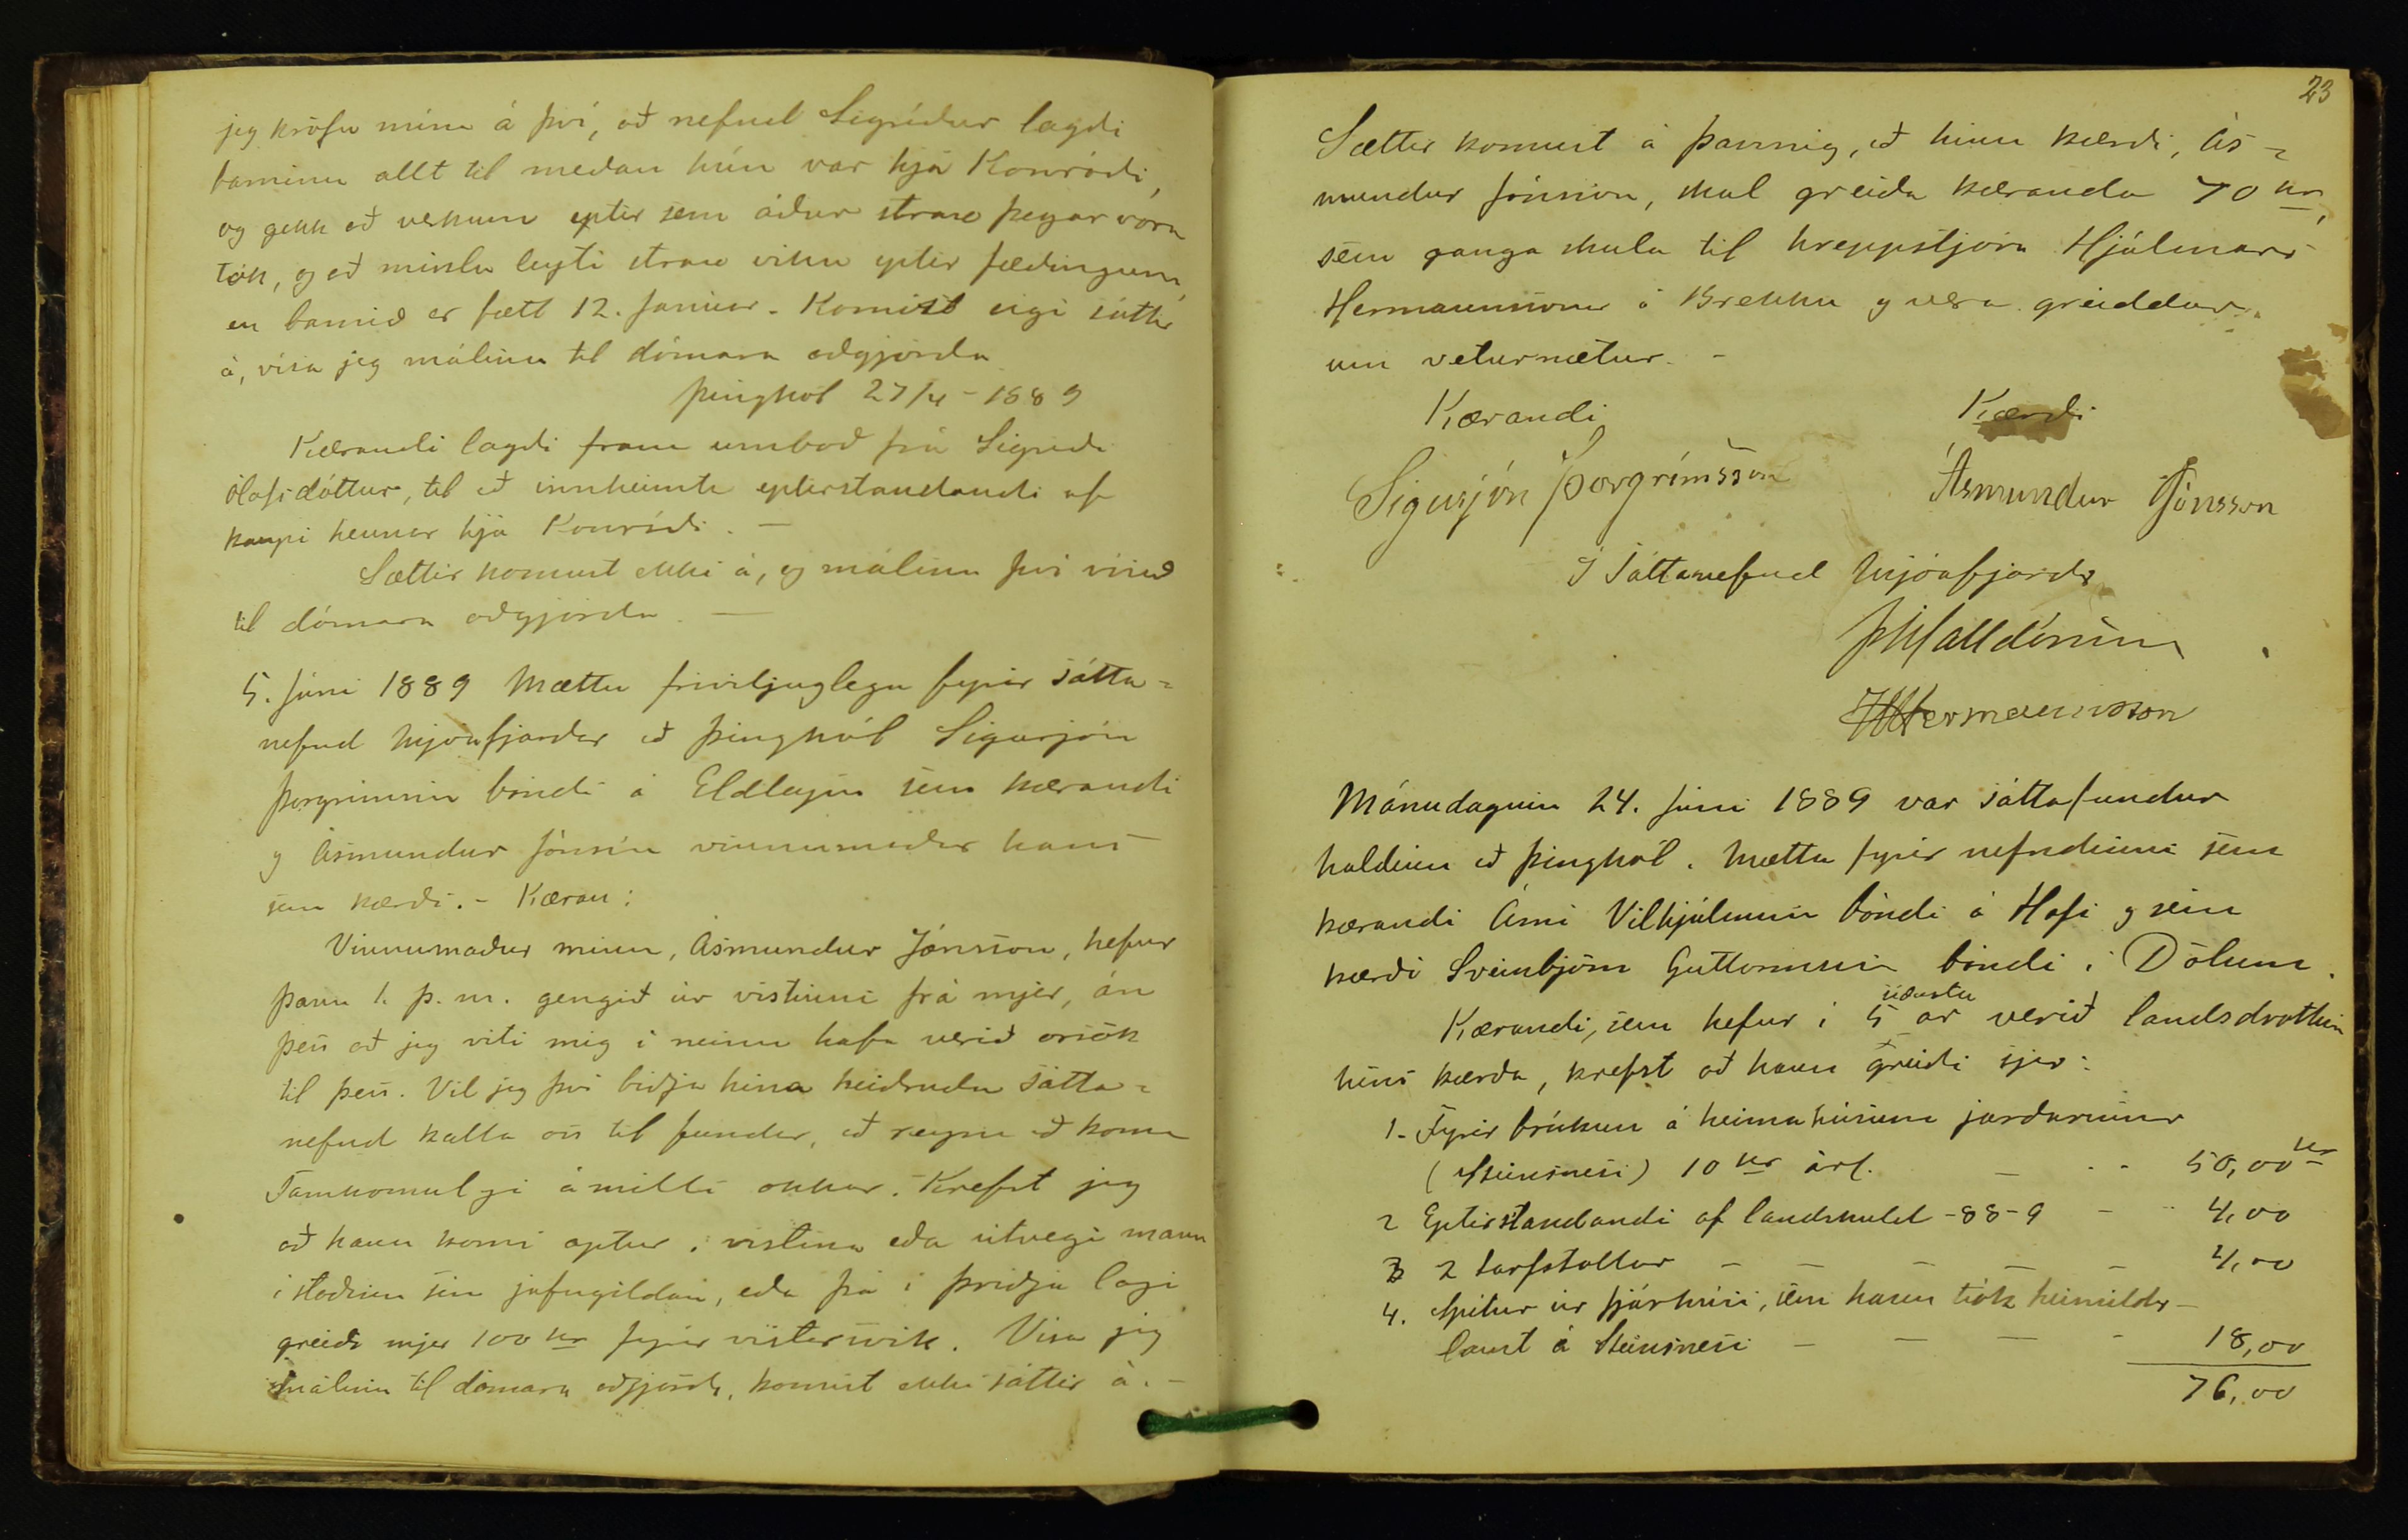 jeg kröfu mína á því, að nefnd Sigríður lagði
barninu allt til meðan hún var hjá Konráði,
og gekk að verkum eptir sem áður strax þegar vora
tók, og að miklu leyti strax viku eptir fæðinguna,
en barnið er fætt 12. Januar. Komist eigi sáttir
á, vísa jeg málinu til dómara aðgjörða
Þinghól 27/4 - 1889
Kærandi lagði fram umboð frá Sigríði
Ólafsdóttur, til að innheimta eptirstandandi af
kaupi hennar hjá Konráði. —
Sættir komust ekki á, og málinu því vísað
til dómara aðgjörða —
5. Júni 1889 Mættu friviljuglega fyrir sátta-
nefnd Mjóafjarðar að Þinghól Sigurjón
Þorgrímsson bóndi á Eldleysu sem kærandi
og Ásmundur Jónsson vinnumaður hans
sem kærði. - Kæran:
Vinnumaður minn, Ásmundur Jónsson, hefur
þann 1. þ. m. gengið úr vistinni frá mjer, án
þess að jeg viti mig í neinu hafa verið orsök
til þess. Vil jeg því biðja hina heiðruðu sátta-
nefnd kalla oss til fundar, að reyna að koma
samkomulagi ámilli okkar. Krefst jeg
að hann komi aptur í vistina eða útvegi mann
í staðinn sinn jafngildan, eða þá í þriðja lagi
greiði mjer 100 kr fyrir vistarsvik. Vísa jeg
málinu til dómara aðgjörða, komist ekki sáttir á. -
23
Sættir komust á þannig, að hinn kærði, Ás-
mundur Jónsson, skal greiða kæranda 70 kr,
sem ganga skulu til hreppstjóra Hjálmars
Hermannssonar á Brekku og vera greiddar
um veturnætur. -
Kærandi Kærði
Sigurjón Þorgrímsson Ásmundur Jónsson
Í Sáttanefnd Mjóafjarðar
Þ Halldórsson
HHermannsson
Mánudaginn 24. Júni 1889 var sáttafundur
haldinn að Þinghól. Mættu fyrir nefndinni sem
kærandi Árni Vilhjálmsson bóndi á Hofi og sem
kærði Sveinbjörn Guttormsson bóndi í Dölum.
Kærandi, sem hefur í 5 síðustu ár verið landsdrottin
hins kærða, krefst að hann greiði sjer:
1. Fyrir brúkun á heimahúsum jarðarinnar
(Steinsnesi) 10 kr árl. — - - 50,00 kr
2 Eptirstandandi af landskuld -88-9 - - 4,00
3 2 tarfstollar - - - - - 4,00
4. Spítur úr fjárhúsi, sem hann tók heimildar-
laust á Steinsnesi - - - - 18,00
76,00